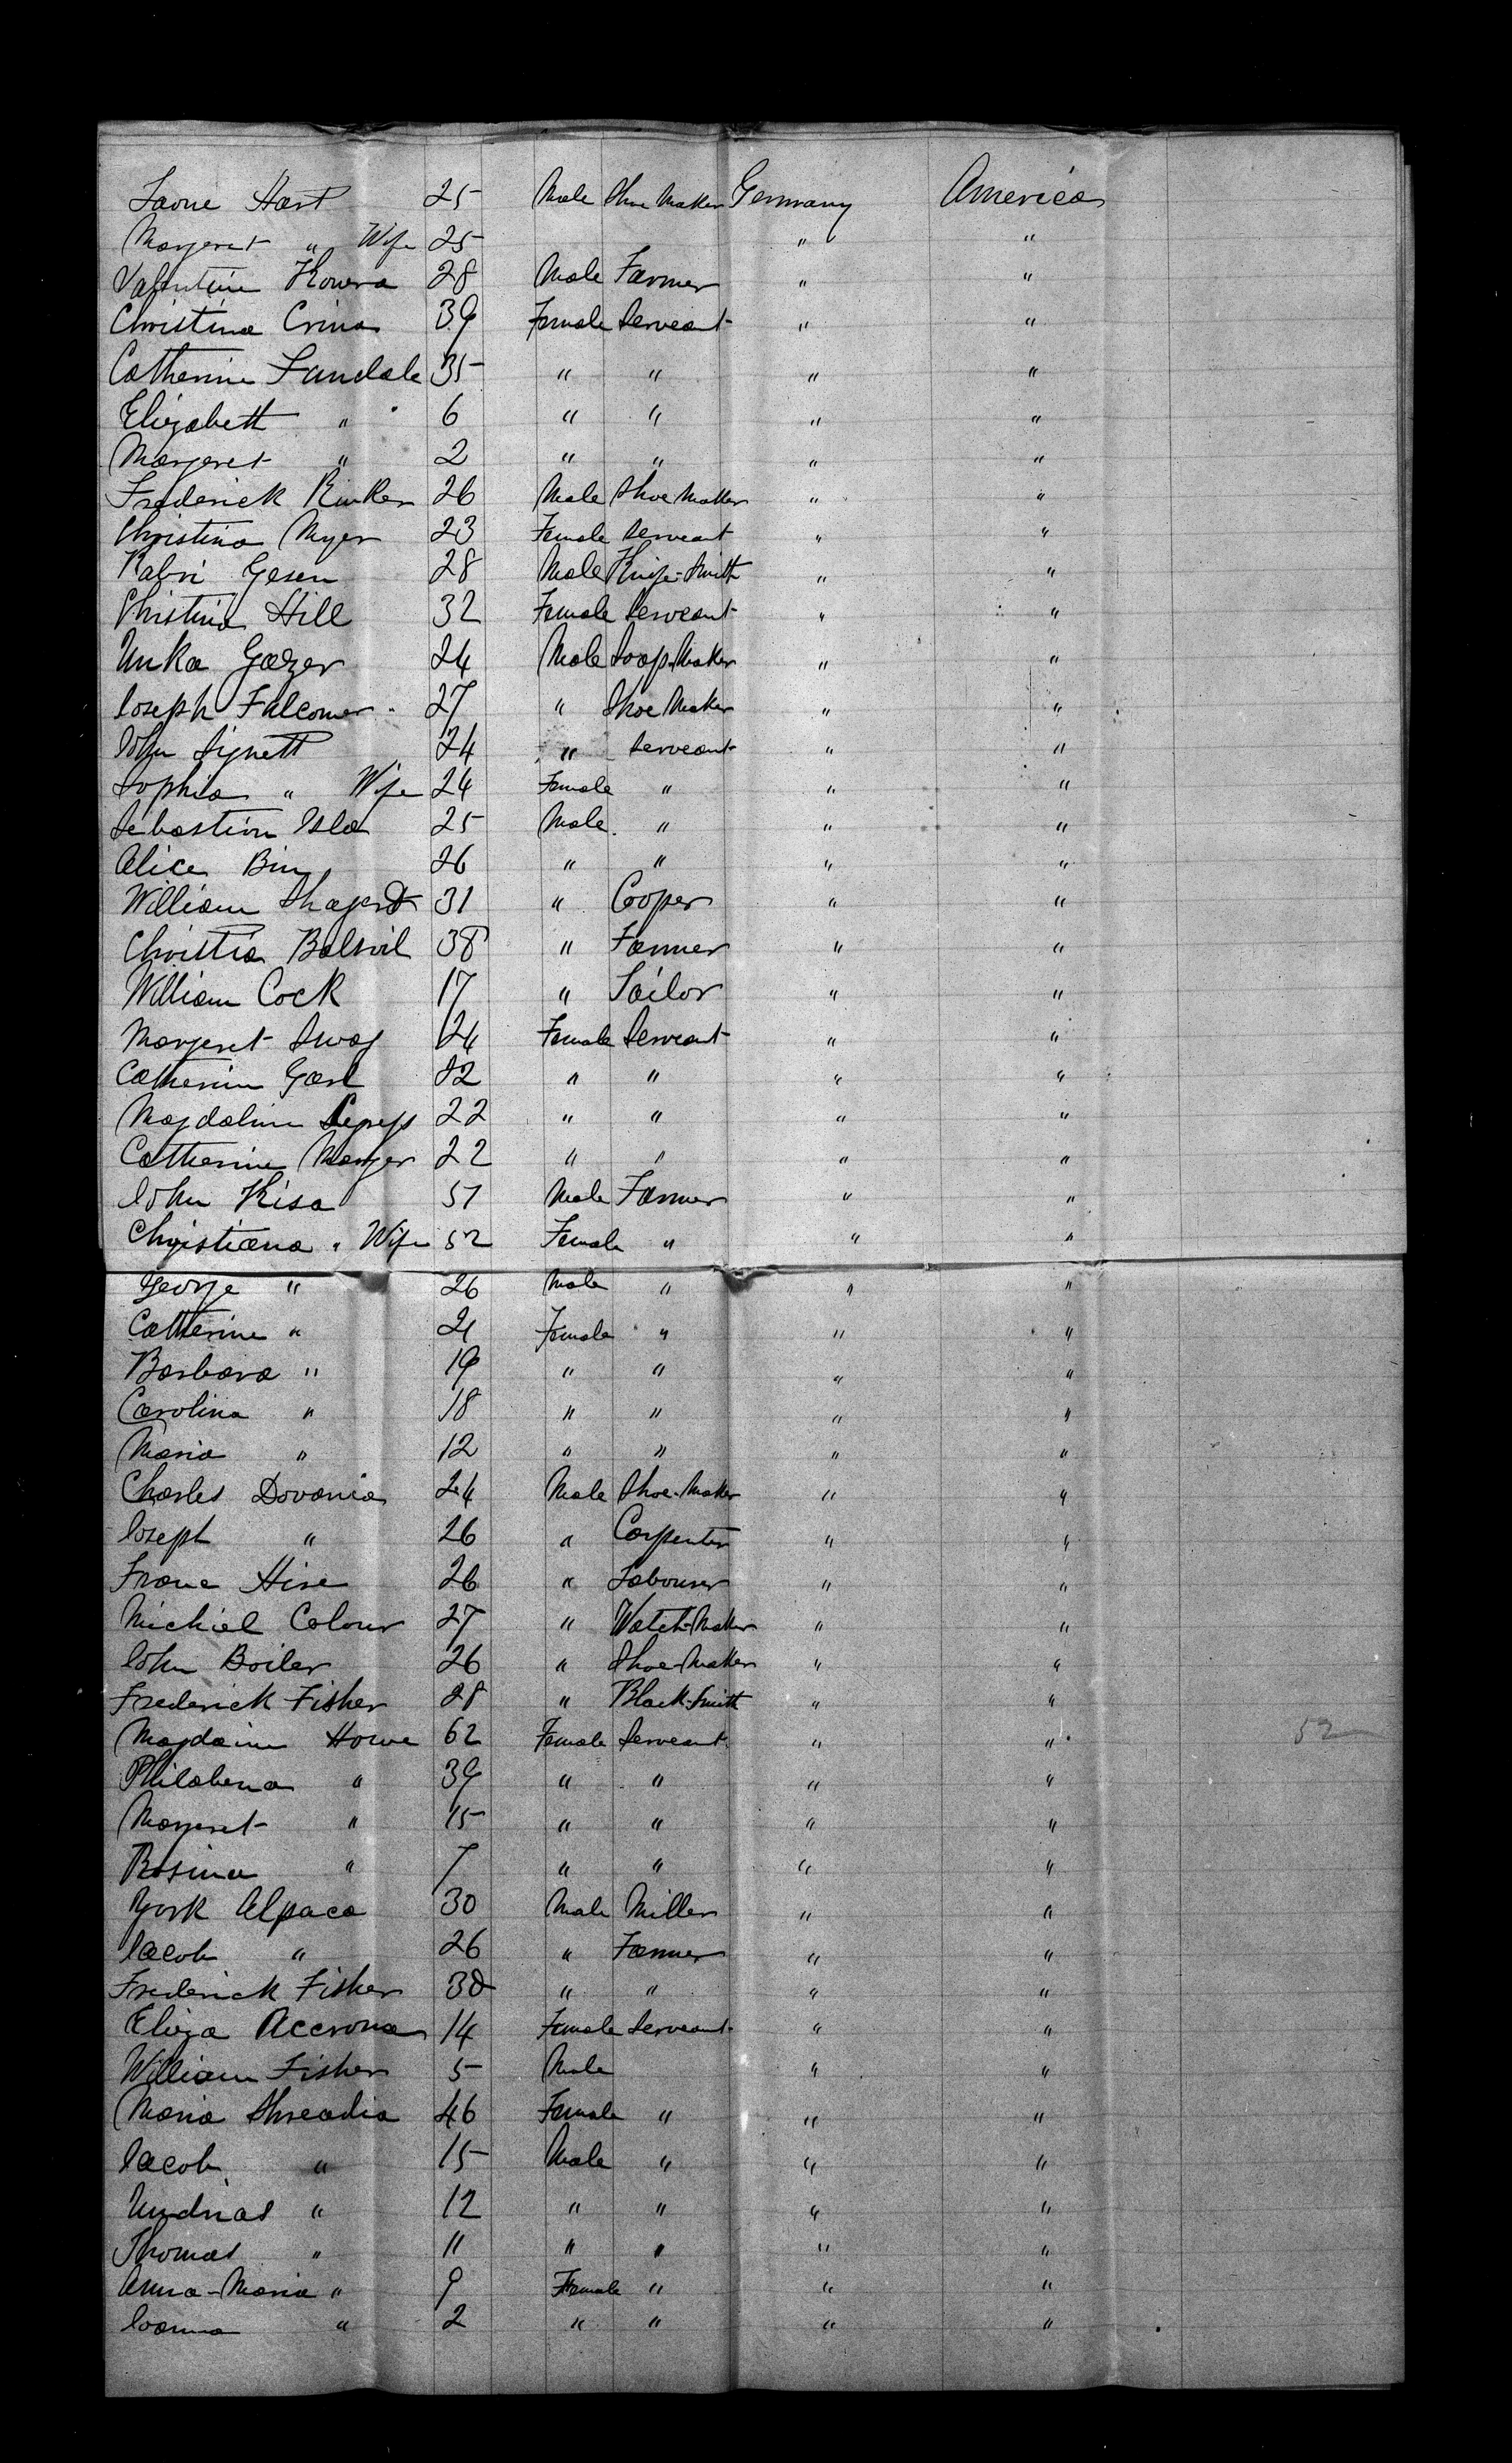 Hart 25 Male Shoe Maker Germany America
Margeret " Wife 25 " "
Valentine Kowera 28 Male Farmer " "
Christina Crina 39 Female Serveant " "
Catherine Landale 35 " " " "
Elizabeth " 6 " " " "
Margeret " 2 " " " "
Frederick Rinker 26 Male Shoe Maker " "
Christina Myer 23 Female Serveant " "
Gesen 28 Male Knife-Smith " "
Christina Hill 32 Female Serveant " "
Unka Gazer 24 Male Soap-Maker " "
Joseph Falconer 27 " Shoe Maker " "
John Signett 24 " Serveant " "
Sophia " Wife 24 Female " " "
Sebastion Isla 25 Male " " "
Alice Bin 26 " " " "
William 31 " Cooper " "
Christia Balsvil 38 " Farmer " "
William Cock 17 " Tailor " "
Margeret Swag 24 Female Serveant " "
Catherine Garl 22 " " " "
Magdaline 22 " " " "
Catherine Manger 22 " " " "
John Kisa 51 Male Farmer " "
Christiana " Wife 52 Female " " "
George " 26 Male " " "
Catherine " 21 Female " " "
Barbara " 19 " " " "
Carolina " 18 " " " "
Maria " 12 " " " "
Charles Dovania 24 Male Shoe-Maker " "
Joseph " 26 " Carpenter " "
Frane Hise 26 " Labourer " "
Michiel Colour 27 " Watch-Maker " "
John Boiler 26 " Shoe-Maker " "
Frederick Fisher 28 " Black-Smith " "
Magdaine Howe 62 Female Serveant " " 52
Philabena " 39 " " " "
Margeret " 15 " " " "
Rosina " 7 " " " "
York Alpaca 30 Male Miller " "
Jacob " 26 " Farmer " "
Frederick Fisher 30 " " " "
Eliza Accrona 14 Female Serveant " "
William Fisher 5 Male " "
Maria Shreadia 46 Female " " "
Jacob " 15 Male " " "
Undrias " 12 " " " "
Thomas " 11 " " " "
Anna-Maria " 9 Female " " "
Joanna " 2 " " " "